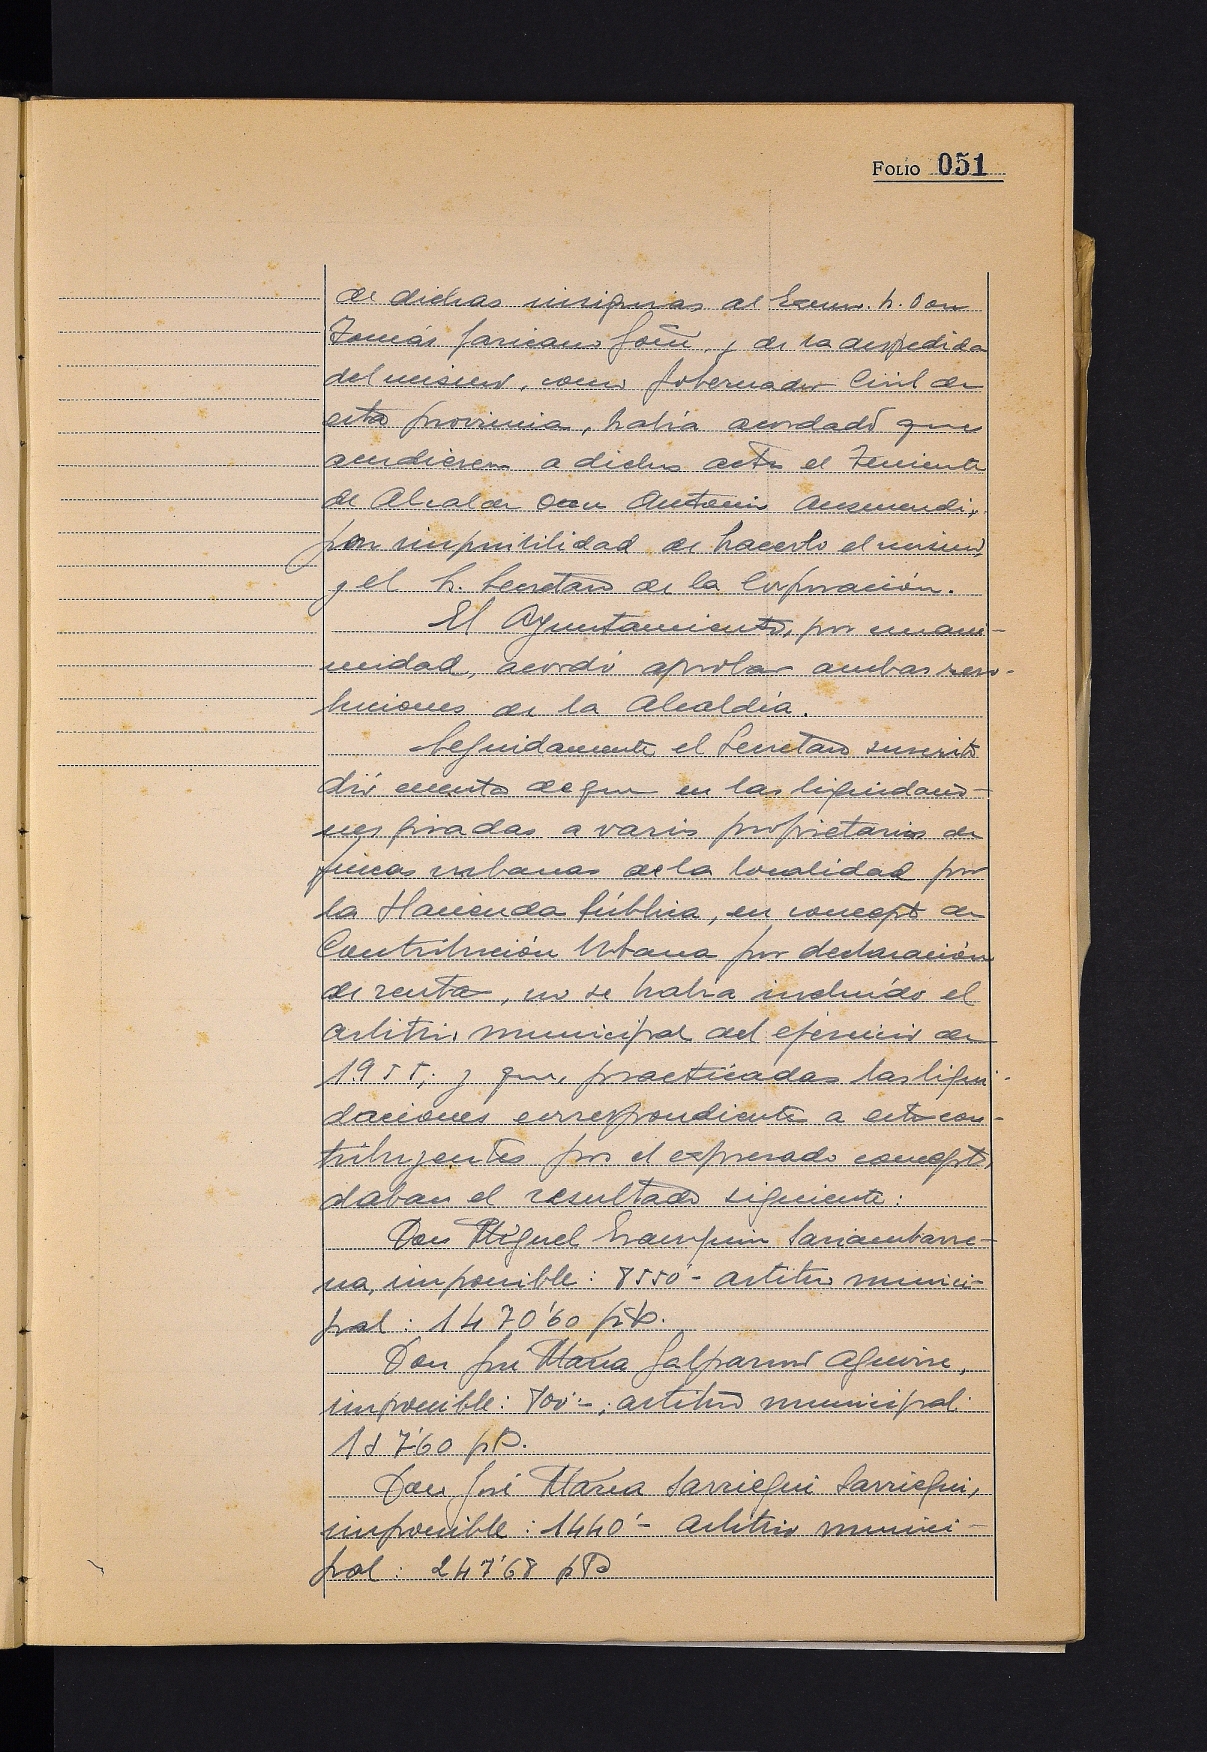 FOLIO 051
de dichas insignias al Excmo. S. Don
Tomás Garicano Goñi, y de la despedida
del mismo, como Gobernador Civil de
esta provincia, había acordado que
acudieren a dicho acto el Teniente
de Alcalde Don Antonio
por imposibilidad de hacerlo el mismo,
y el S. Secretario de la Corporación.
El Ayuntamiento, por unani-
midad, acordó aprobar ambas reso-
luciones de la Alcaldía.
Seguidamente el Secretario suscrito
dió cuenta de que en las liquidacio-
nes giradas a varios propietarios de
fincas urbanas de la localidad por
la Hacienda Pública, en concepto de
Contribución Urbana por declaración
de renta, no se había incluído el
arbitrio municipal del ejercicio de
1955; y que, practicadas las liqui-
daciones correspondiente a estos con-
tribuyentes por el expresado concepto,
daban el resultado siguiente:
Don Miguel Sariambarre-
na, imponible: 8550'- arbitrio munici-
pal: 1470'60 pts.
Don José María Galparsoro Aguirre,
imponible: 800'-; arbitrio municipal:
137'60 pts.
Don José María Sarriegui Sarriegui,
imponible: 1440'- arbitrio munici-
pal: 247'68 pts